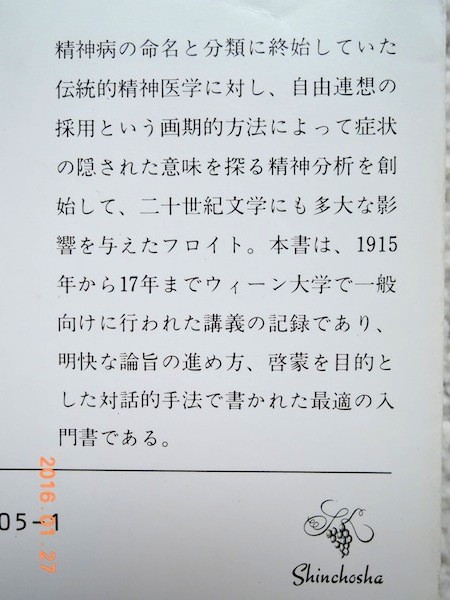 精神病の命名と分類に終始していた
伝統的精神医学に対し、自由連想の
採用という画期的方法によって症状
の隠された意味を探る精神分析を創
始して、二十世紀文学にも多大な影
響を与えたフロイト。本書は、1915
年から17年までウィーン大学で一般
向けに行われた講義の記録であり、
明快な論旨の進め方、啓蒙を目的と
した対話的手法で書かれた最適の入
門書である。
05-1
2016.01.27
Shinchosha